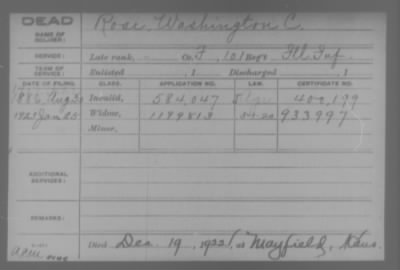 DEAD
NAME OF SOLDIER: Rose, Washington C.
SERVICE: Late rank, Co. F, 101 Reg't Ill Inf
TERM OF SERVICE: Enlisted , 1 Discharged , 1
DATE OF FILING. CLASS. APPLICATION NO. LAW. CERTIFICATE NO.
1886 Aug 30 Invalid, 584,047 400,199
1923 Jan 25 Widow, 1199813 933997
Minor,
ADDITIONAL SERVICES:
REMARKS:
Died Dec 19, 1922, at Mayfield, Kans.